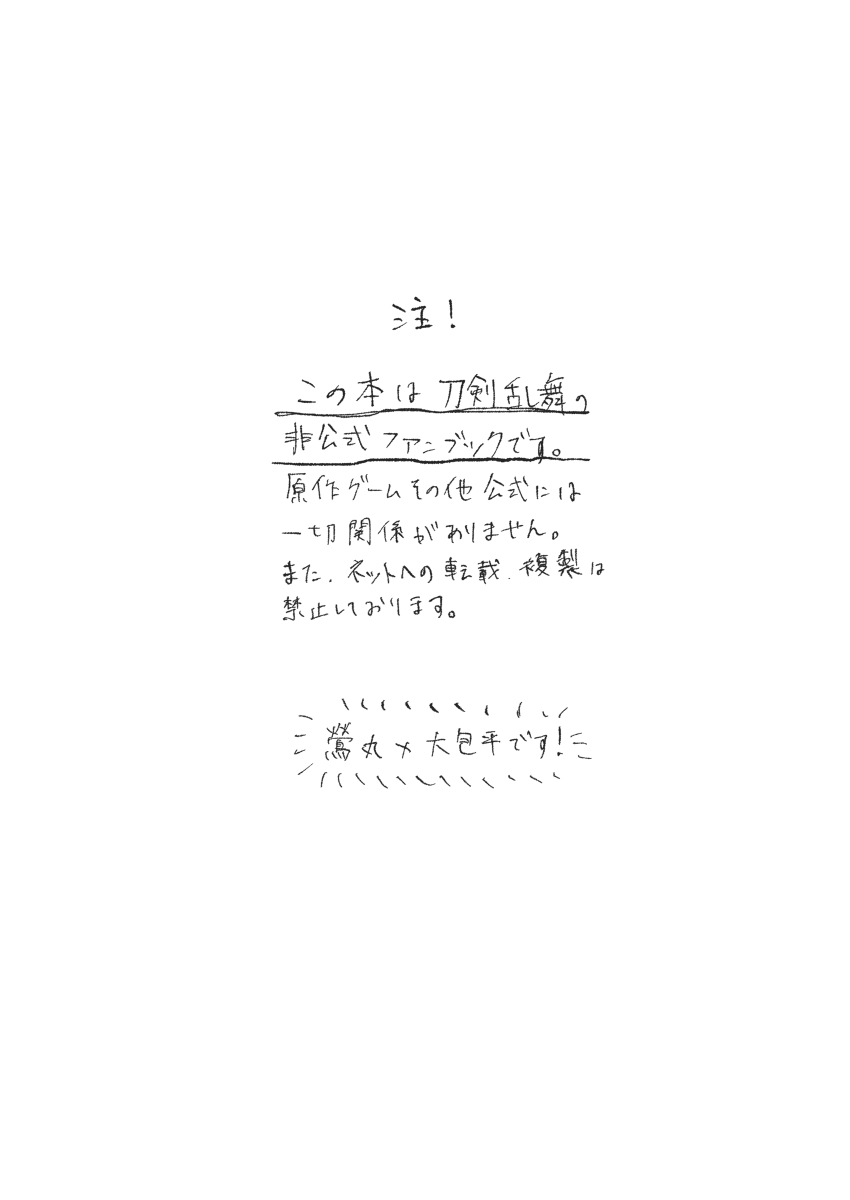 注!
この本は刀剣乱舞の
非公式ファンブックです。
原作ゲームその他公式には
一切関係がありません。
また、ネットへの転載、複製は
禁止しております。
鶯丸×大包平です!